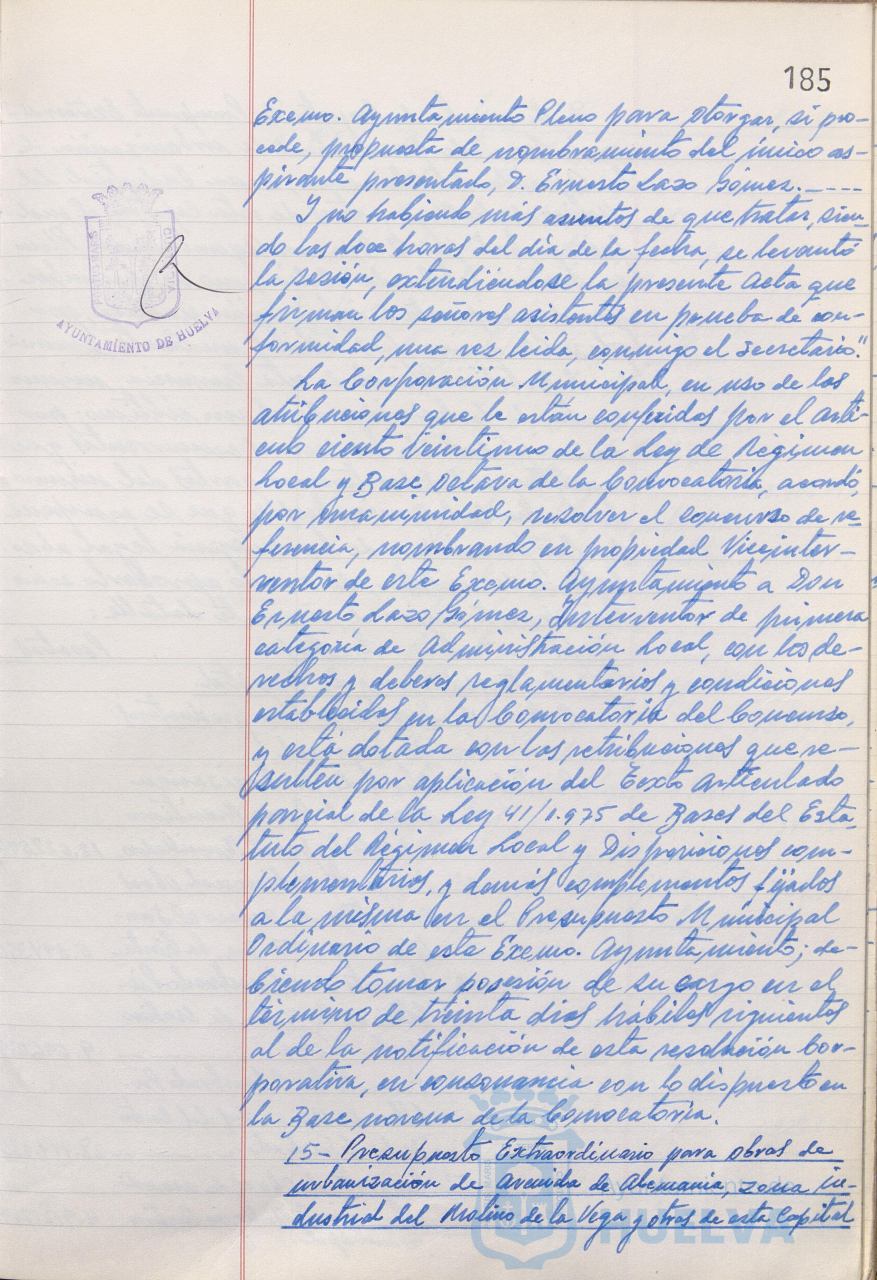 185
Excmo. Ayuntamiento Pleno para otorgar, si pro-
cede, propuesta de nombramiento del único as-
pirante presentado, D. Ernesto Lazo Gómez. ----
Y no habiendo más asuntos de que tratar, sien-
do las doce horas del día de la fecha, se levantó
la sesión, extendiéndose la presente Acta que
firman los señores asistentes en prueba de con-
formidad, una vez leida, conmigo el Secretario."
La Corporación Municipal, en uso de las
atribuciones que le están conferidas por el artí-
culo ciento veintiuno de la Ley de Régimen
Local y Base Octava de la Convocatoria, acordó,
por unanimidad, resolver el concurso de re-
ferencia, nombrando en propiedad Viceinter-
ventor de este Excmo. Ayuntamiento a Don
Ernesto Lazo Gómez, Interventor de primera
categoría de Administración Local, con los de-
rechos y deberes reglamentarios y condiciones
establecidas en la Convocatoria del Concurso,
y está dotada con las retribuciones que re-
sulten por aplicación del Texto articulado
parcial de la Ley 41/1.975 de Bases del Esta-
tuto del Régimen Local y Disposiciones com-
plementarias, y demás complementos fijados
a la misma en el Presupuesto Municipal
Ordinario de este Excmo. Ayuntamiento; de-
biendo tomar posesión de su cargo en el
término de treinta dias hábiles siguientes
al de la notificación de esta resolución Cor-
porativa, en consonancia con lo dispuesto en
la Base novena de la Convocatoria.
15- Presupuesto Extraordinario para obras de
urbanización de Avenida de Alemania, zona in-
dustrial del Molino de la Vega y otras de esta Capital
AYUNTAMIENTO DE HUELVA
HUELVA